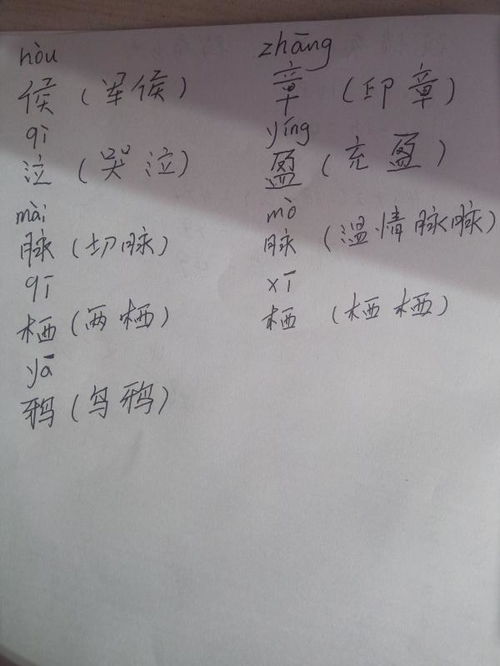 hòu zhāng
侯 (军侯) 章 (印章)
qì yíng
泣 (哭泣) 盈 (充盈)
mài mò
脉 (切脉) 脉 (温情脉脉)
qī xī
栖 (两栖) 栖 (栖栖)
yā
鸦 (乌鸦)